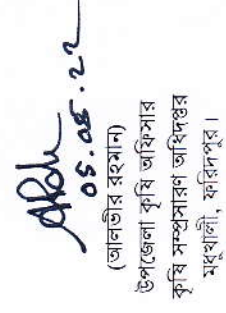 ০৫.০৫.২২
(আলভীর রহমান)
উপজেলা কৃষি অফিসার
কৃষি সম্প্রসারণ অধিদপ্তর
মধুখালী, ফরিদপুর।